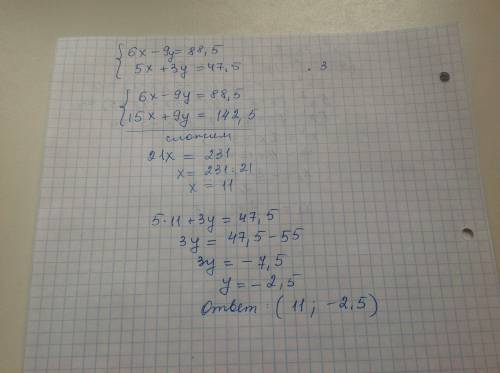 { 6x - 9y = 88,5
5x + 3y = 47,5 . 3
{ 6x - 9y = 88,5
15x + 9y = 142,5
сложим
21x = 231
x = 231 : 21
x = 11
5·11 + 3y = 47,5
3y = 47,5 - 55
3y = -7,5
y = -2,5
Ответ: (11; -2,5)